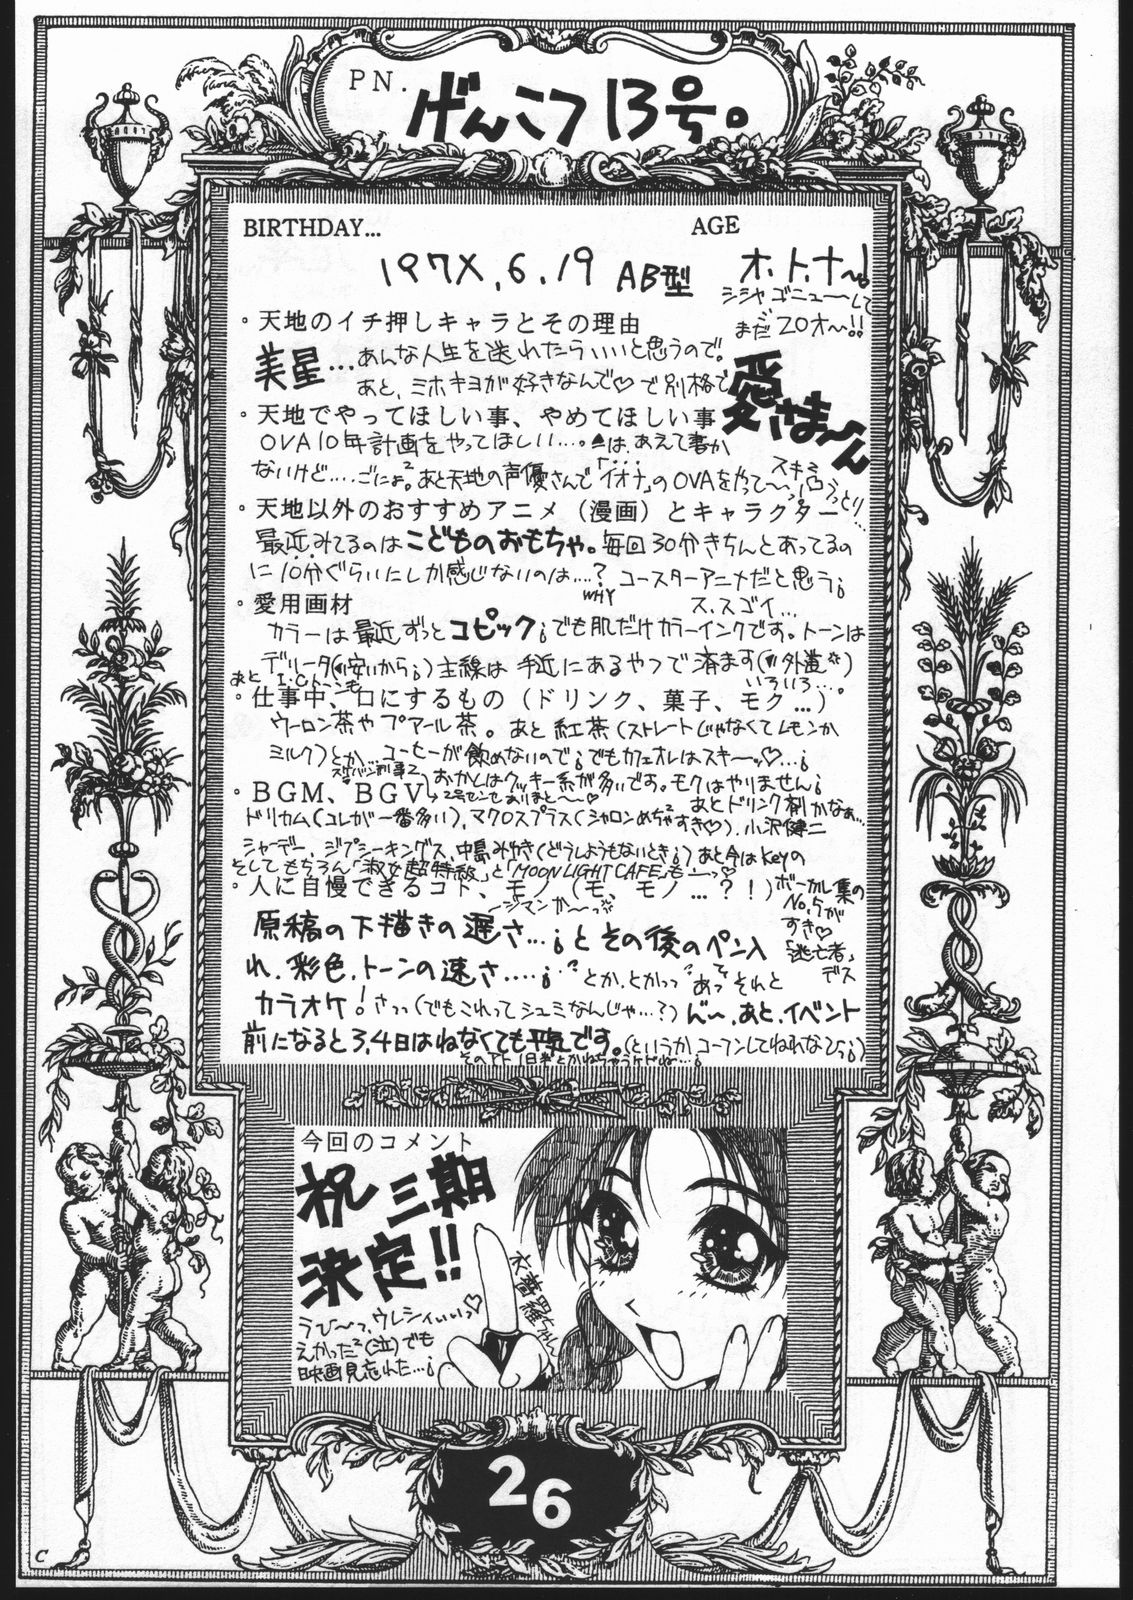 PN.
げんこつ13号。
BIRTHDAY...
AGE
197X.6.19 AB型
オ.ト.ナ〜!
シシャゴニューして
まだ20才〜!!
・天地のイチ押しキャラとその理由
美星…あんな人生を送れたらいいと思うので。
あと、ミホキヨが好きなんで♡で別格で
愛さま〜ん
・天地でやってほしい事、やめてほしい事
OVA10年計画をやってほしい…。♠は、あえて書か
ないけど….ごにょ²。あと天地の声優さんで「イオナ」のOVAをやって〜っ
スキっ
うっとり…
・天地以外のおすすめアニメ（漫画）とキャラクター
最近みてるのはこどものおもちゃ。毎回30分きちんとあってるの
に10分ぐらいにしか感じないのは….? コースターアニメだと思う¡
WHY
ス、スゴイ…
・愛用画材
カラーは最近ずっとコピック¡でも肌だけカラーインクです。トーンは
デリータ(安いから¡)主線は手近にあるやつで済ます(外道)
あとI.C.トーンも
いろいろ…。
・仕事中、口にするもの（ドリンク、菓子、モク…）
ウーロン茶やプアール茶。あと紅茶(ストレートじゃなくてレモンか
ミルク)とか…コーヒーが飲めないので¡でもカフェオレはスキ〜ッ♡…¡
おかしはクッキー系が多いです。モクはやりません¡
・BGM、BGV
スケバン刑事2
2号センセありまと〜〜♡
あとドリンク剤かなぁ…
ドリカム(コレが一番多い)、マクロスプラス(シャロンめちゃすき♡)、小沢健二
シャーデー、ジプシーキングス、中島みゆき(どうしようもないとき¡)あと今はKeyの
そしてもちろん「淑女超特級」と「MOONLIGHT CAFE」も―っ♡
ボーカル集の
No.5が
すき♡
「逃亡者」
デス
・人に自慢できるコト、モノ（モ、モノ…？！）
ジマンか〜っ
原稿の下描きの遅さ…¡とその後のペン入
れ、彩色、トーンの速さ….¡ とか、とかっっ あっ それと
カラオケ!さっっ(でもこれってシュミなんじゃ…?)ん〜、あと、イベント
前になると3,4日はねなくても平気です。(というか、コーフンしてねれない¡)
そのアト1日半とかねちゃうケドね…¡
今回のコメント
祝三期
決定!!
うひ〜っ、ウレシィぃぃっ♡
えかった²(泣)でも
映画見忘れた…¡
26
C